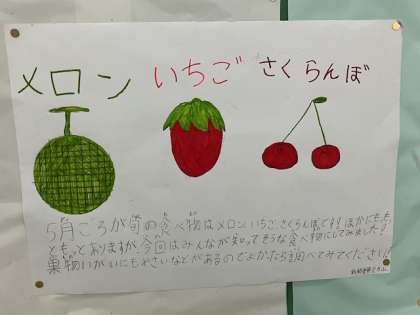 メロン いちご さくらんぼ
5月ごろが旬の食べ物はメロン、いちご、さくらんぼです!!ほかにもも、
ともっとありますが、今回はみんなが知ってそうな食べ物にしてみました!
果物いがいにもやさいなどがあるのでよかたら調べてみてください!!